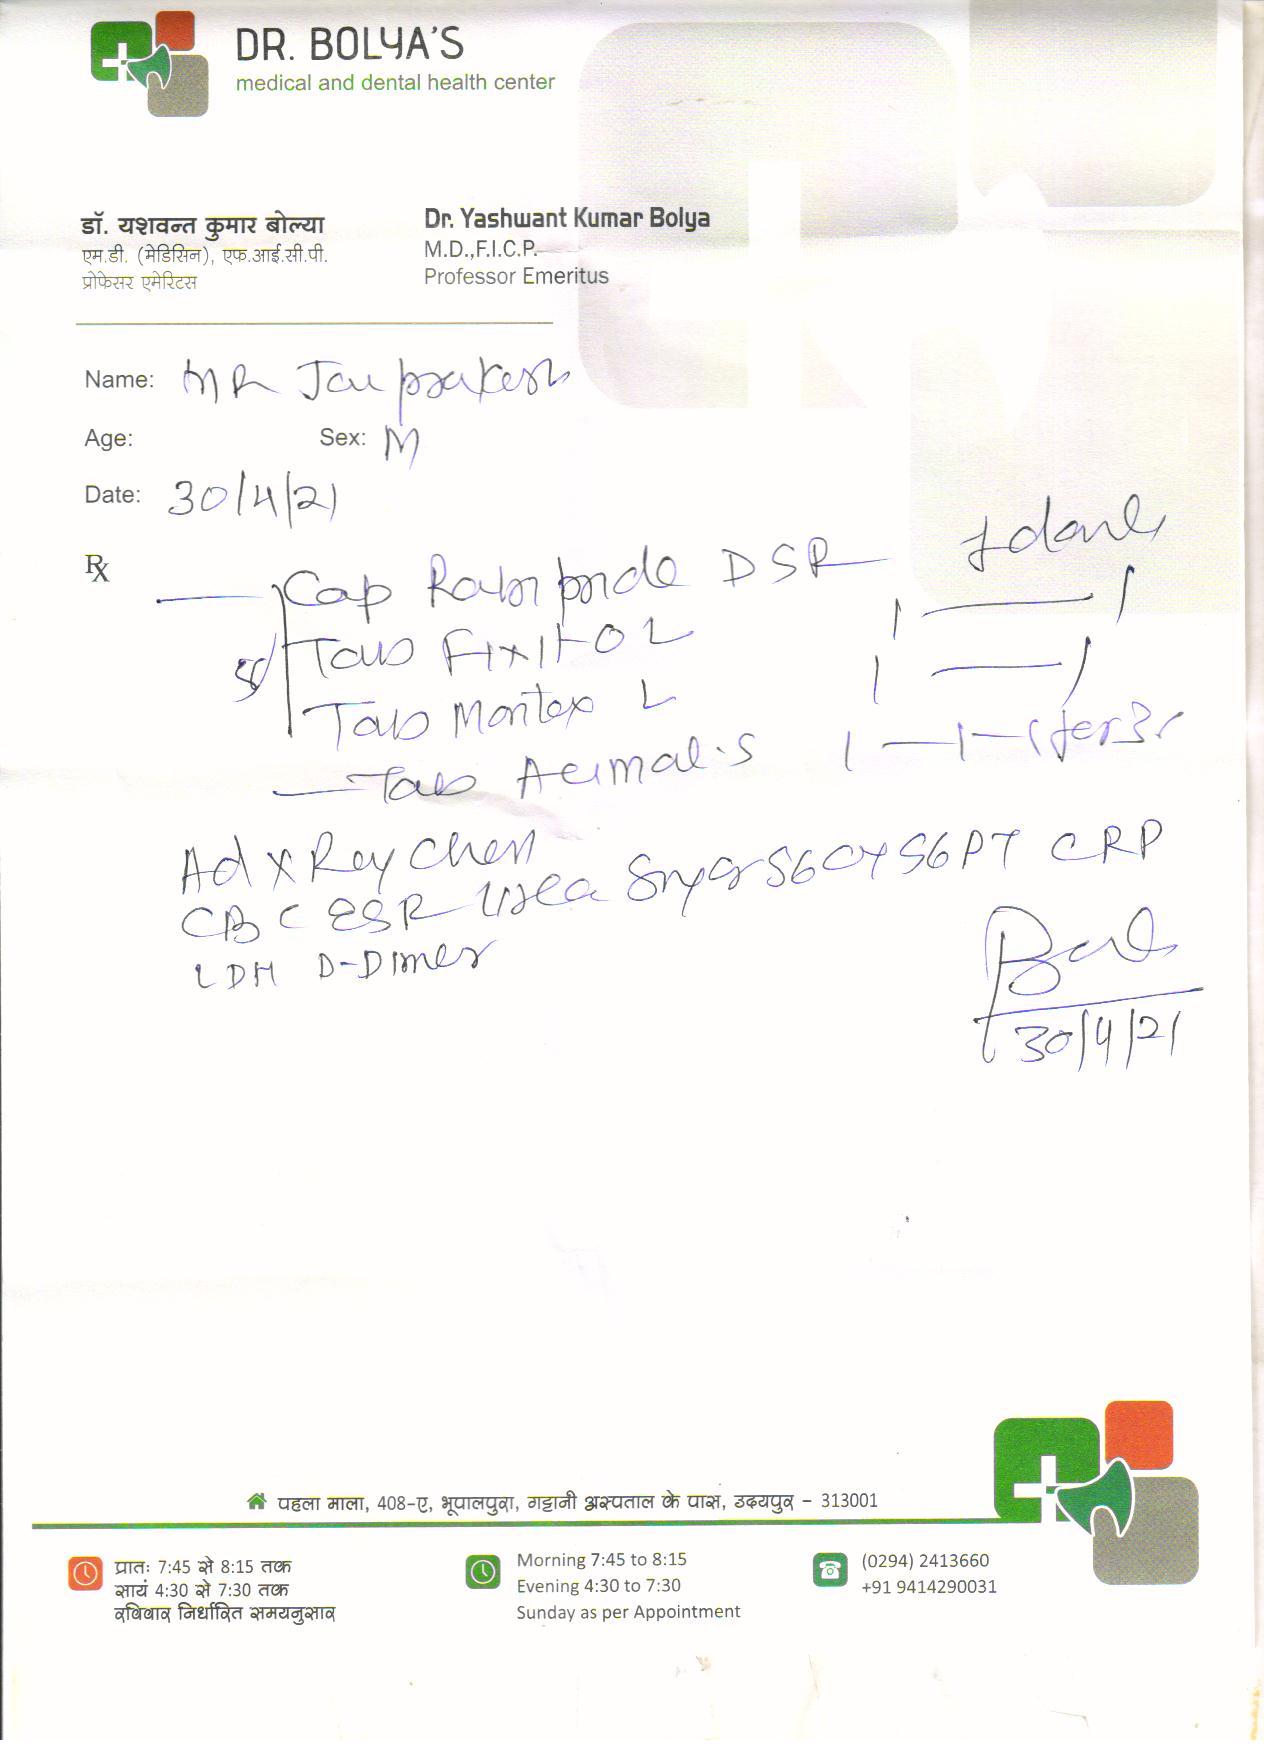 DR. BOLYA'S
medical and dental health center
डॉ. यशवन्त कुमार बोल्या
एम.डी. (मेडिसिन), एफ.आई.सी.पी.
प्रोफेसर एमेरिटस
Dr. Yashwant Kumar Bolya
M.D.,F.I.C.P.
Professor Emeritus
Name: MR Jai prakash
Age: Sex: M
Date: 30/4/21
Rx
Cap DSR 1 daily
Tab 1 — 1
Tab Montex L 1 — 1
Tab 1 — 1 — (for 3
Ad X Ray Chest
CBC ESR Urea Sugar SGOT SGPT CRP
LDH D-Dimer
30/4/21
पहला माला, 408-ए, भूपालपुरा, गट्टानी अस्पताल के पास, उदयपुर - 313001
प्रातः 7:45 से 8:15 तक
सायं 4:30 से 7:30 तक
रविवार निर्धारित समयनुसार
Morning 7:45 to 8:15
Evening 4:30 to 7:30
Sunday as per Appointment
(0294) 2413660
+91 9414290031